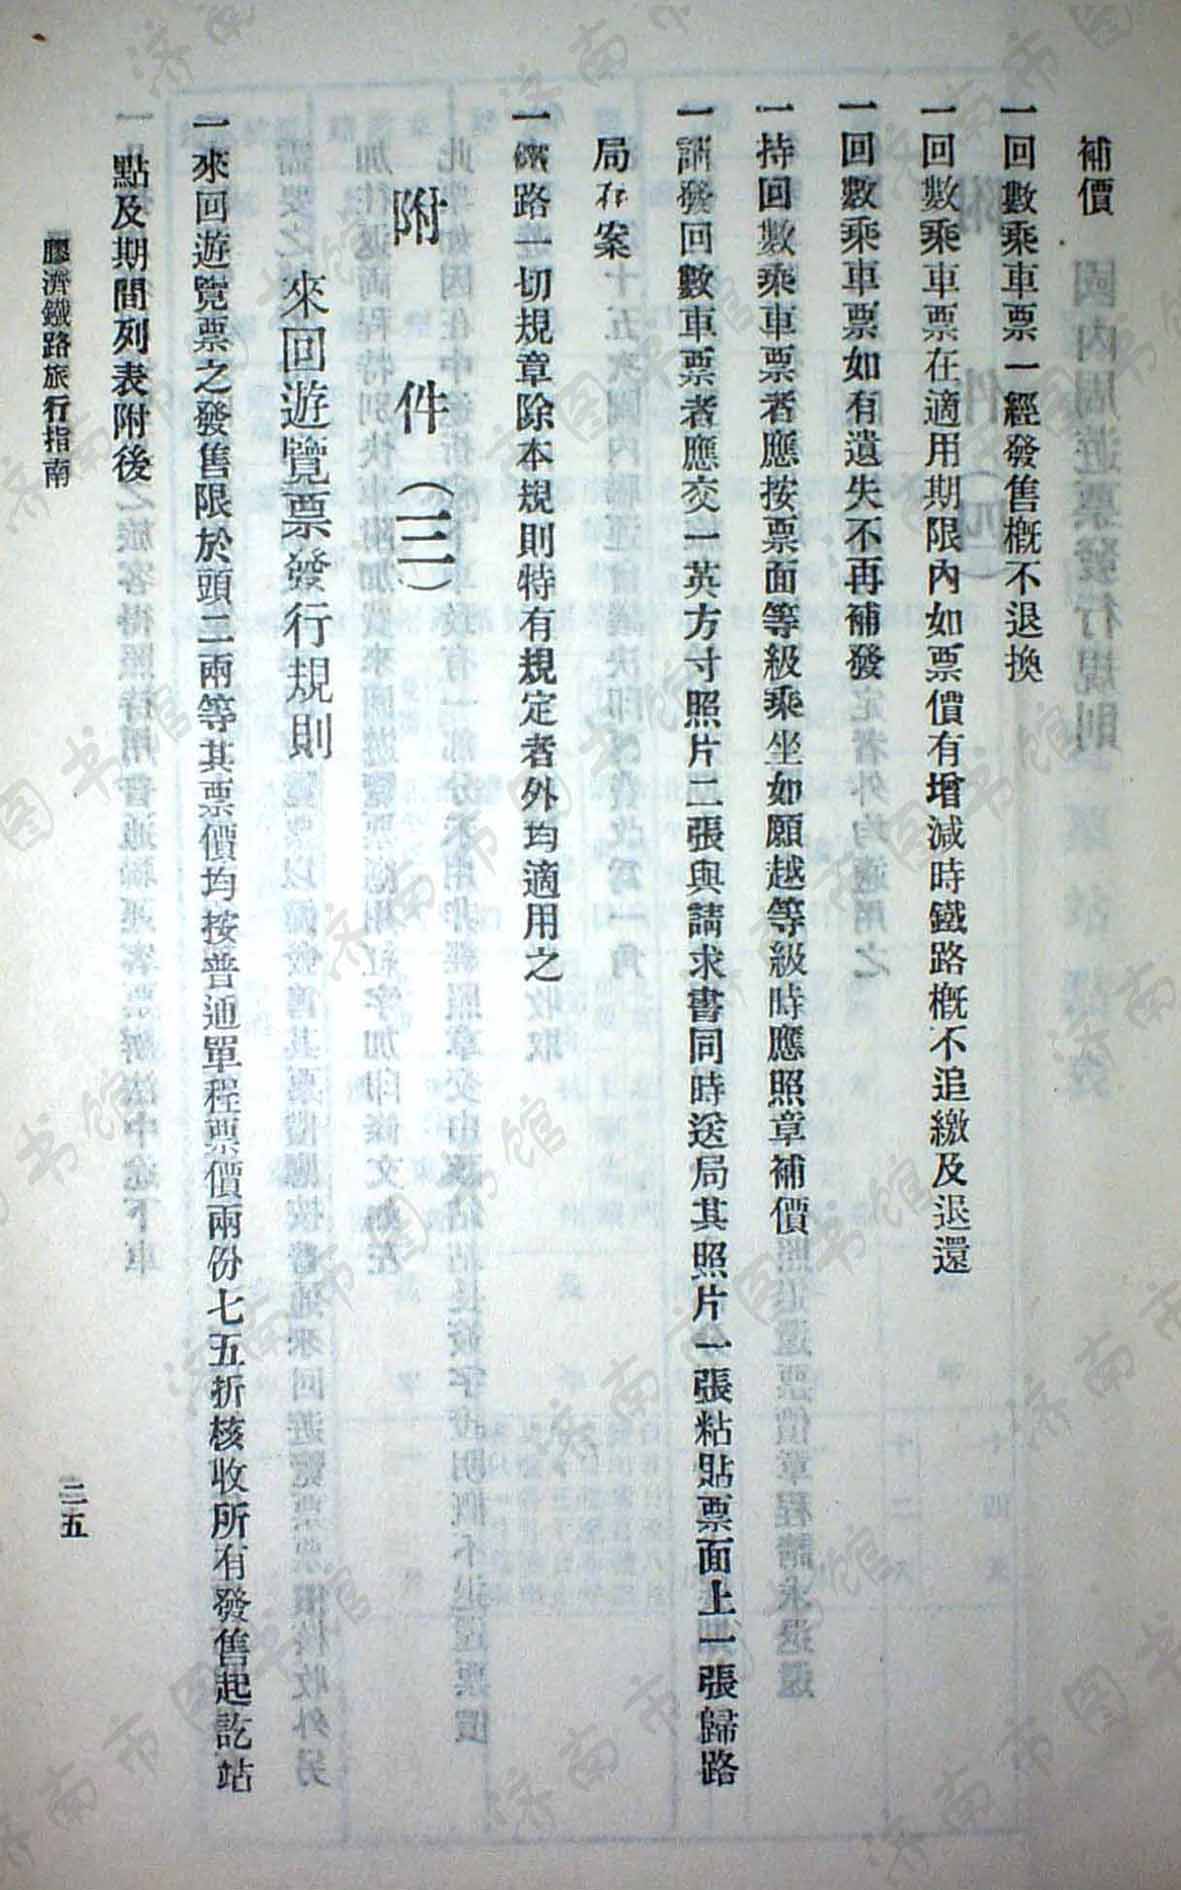 補價
一回數乘車票一經發售概不退換
一回數乘車票在適用期限內如票價有增減時鐵路概不追繳及退還
一回數乘車票如有遺失不再補發
一持回數乘車票者應按票面等級乘坐如願越等級時應照章補價
一請發回數車票者應交一英方寸照片二張與請求書同時送局其照片一張粘貼票面上一張歸路
局存案
一鐵路一切規章除本規則特有規定者外均適用之
附 件 （三）
來回遊覽票發行規則
一來回遊覽票之發售限於頭二兩等其票價均按普通單程票價兩份七五折核收所有發售起訖站
點及期間列表附後
膠濟鐵路旅行指南
二五
济南市图书馆